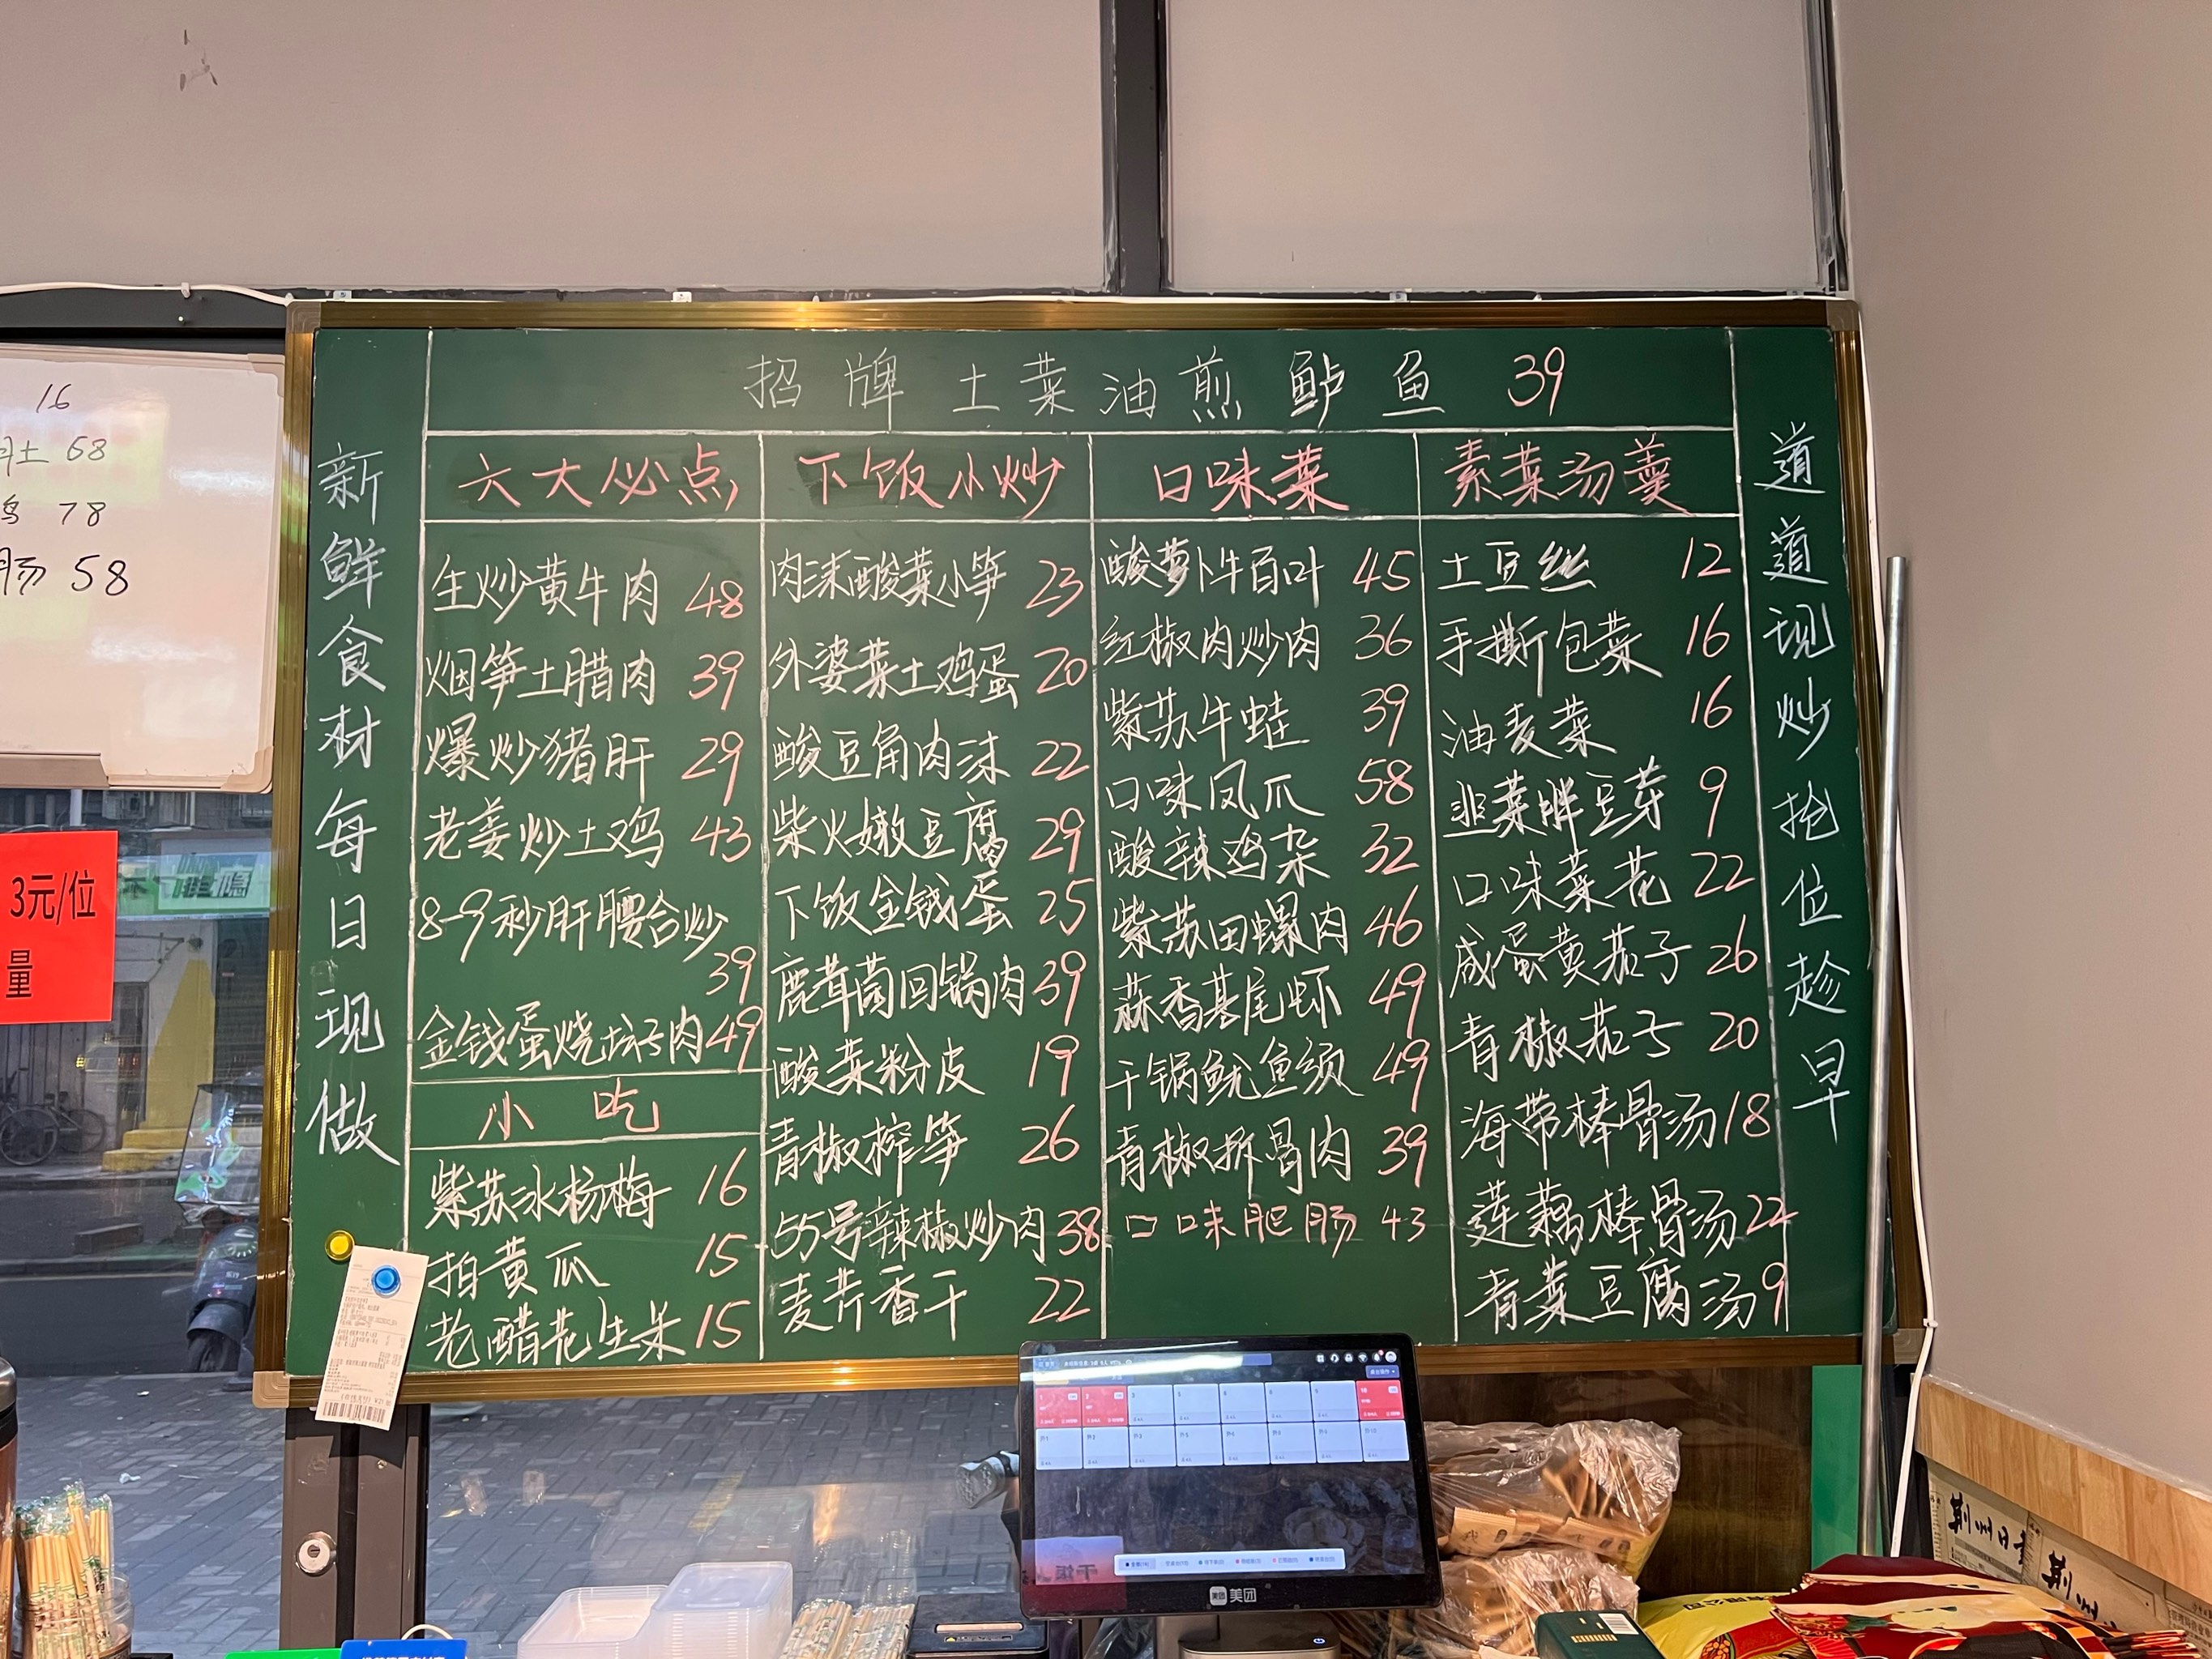 招牌土菜油煎鲈鱼 39
新鲜食材每日现做
六大必点
生炒黄牛肉 48
烟笋土腊肉 39
爆炒猪肝 29
老姜炒土鸡 43
8-9秒肝腰合炒
39
金钱蛋烧坛子肉 49
小吃
紫苏冰杨梅 16
拍黄瓜 15
老醋花生米 15
下饭小炒
肉沫酸菜小笋 23
外婆菜土鸡蛋 20
酸豆角肉沫 22
柴火嫩豆腐 29
下饭金钱蛋 25
鹿茸菌回锅肉 39
酸菜粉皮 19
青椒榨笋 26
55号辣椒炒肉 38
麦芹香干 22
口味菜
酸萝卜牛百叶 45
红椒肉炒肉 36
紫苏牛蛙 39
口味凤爪 58
酸辣鸡杂 32
紫苏田螺肉 46
蒜香基尾虾 49
干锅鱿鱼须 49
青椒拆骨肉 39
口味肥肠 43
素菜汤羹
土豆丝 12
手撕包菜 16
油麦菜 16
韭菜拌豆芽 9
口味菜花 22
咸蛋黄茄子 26
青椒茄子 20
海带棒骨汤 18
莲藕棒骨汤 22
青菜豆腐汤 9
道道现炒抢位趁早
16
土 68
鸡 78
肠 58
3元/位
量
美团
荆州
荆州